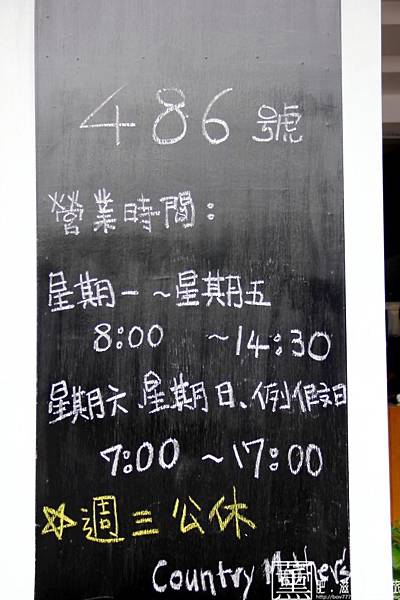 486號
營業時間:
星期一~星期五
8:00 ~14:30
星期六、星期日、例假日
7:00~17:00
☆週三公休
Country Mother's